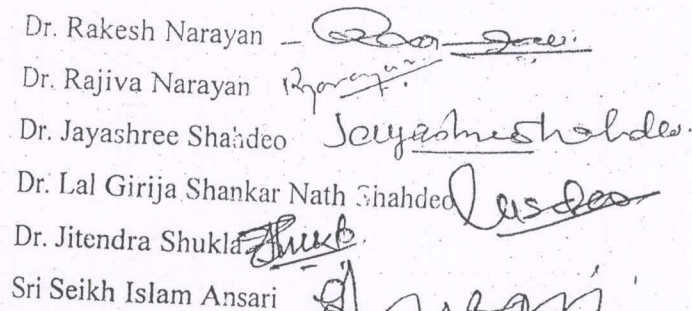 Dr. Rakesh Narayan –
Dr. Rajiva Narayan
Dr. Jayashree Shahdeo Jayashree Shahdeo.
Dr. Lal Girija Shankar Nath Shahdeo
Dr. Jitendra Shukla
Sri Seikh Islam Ansari